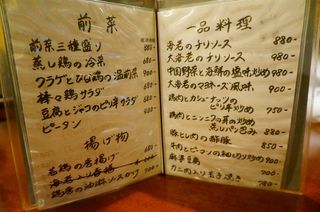 前菜
前菜三種盛り 680-
蒸し鶏の冷菜 680-
クラゲとひな鶏の温前菜 900-
棒々鶏サラダ
豆腐とジャコのピリ辛サラダ
ピータン
揚げ物
若鶏の唐揚げ
海老
鶏唐の油淋ソースがけ
一品料理
海老のチリソース 880-
大海老のチリソース
中国野菜と海鮮の塩味炒め 980-
大海老のマヨネーズ風味
鶏肉とカシューナッツの
ピリ辛炒め 750-
鶏肉とニンニクの芽の炒め
蒸しパン包み 880-
豚ヒレ肉の酢豚 850-
牛肉とピーマンの細切り炒め
麻婆豆腐
カニ肉入り玉子焼き